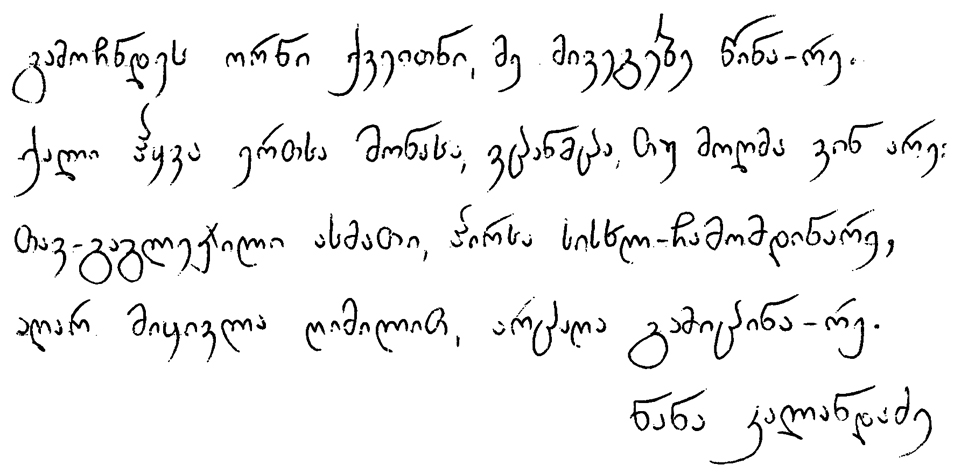 გამოჩნდეს ორნი ქვეითნი, მე მივეგებე წინა-რე.
ქალი ჰყვა ერთსა მონასა, ვცანმცა, თუ მოლმა ვინ არე:
თავ-გაგლეჯილი ასმათი, პირსა სისხლ-ჩამომდინარე,
აღარ მიყივლა ღიმილით, არცაღა გამიცინა-რე.
ნანა კალანდაძე